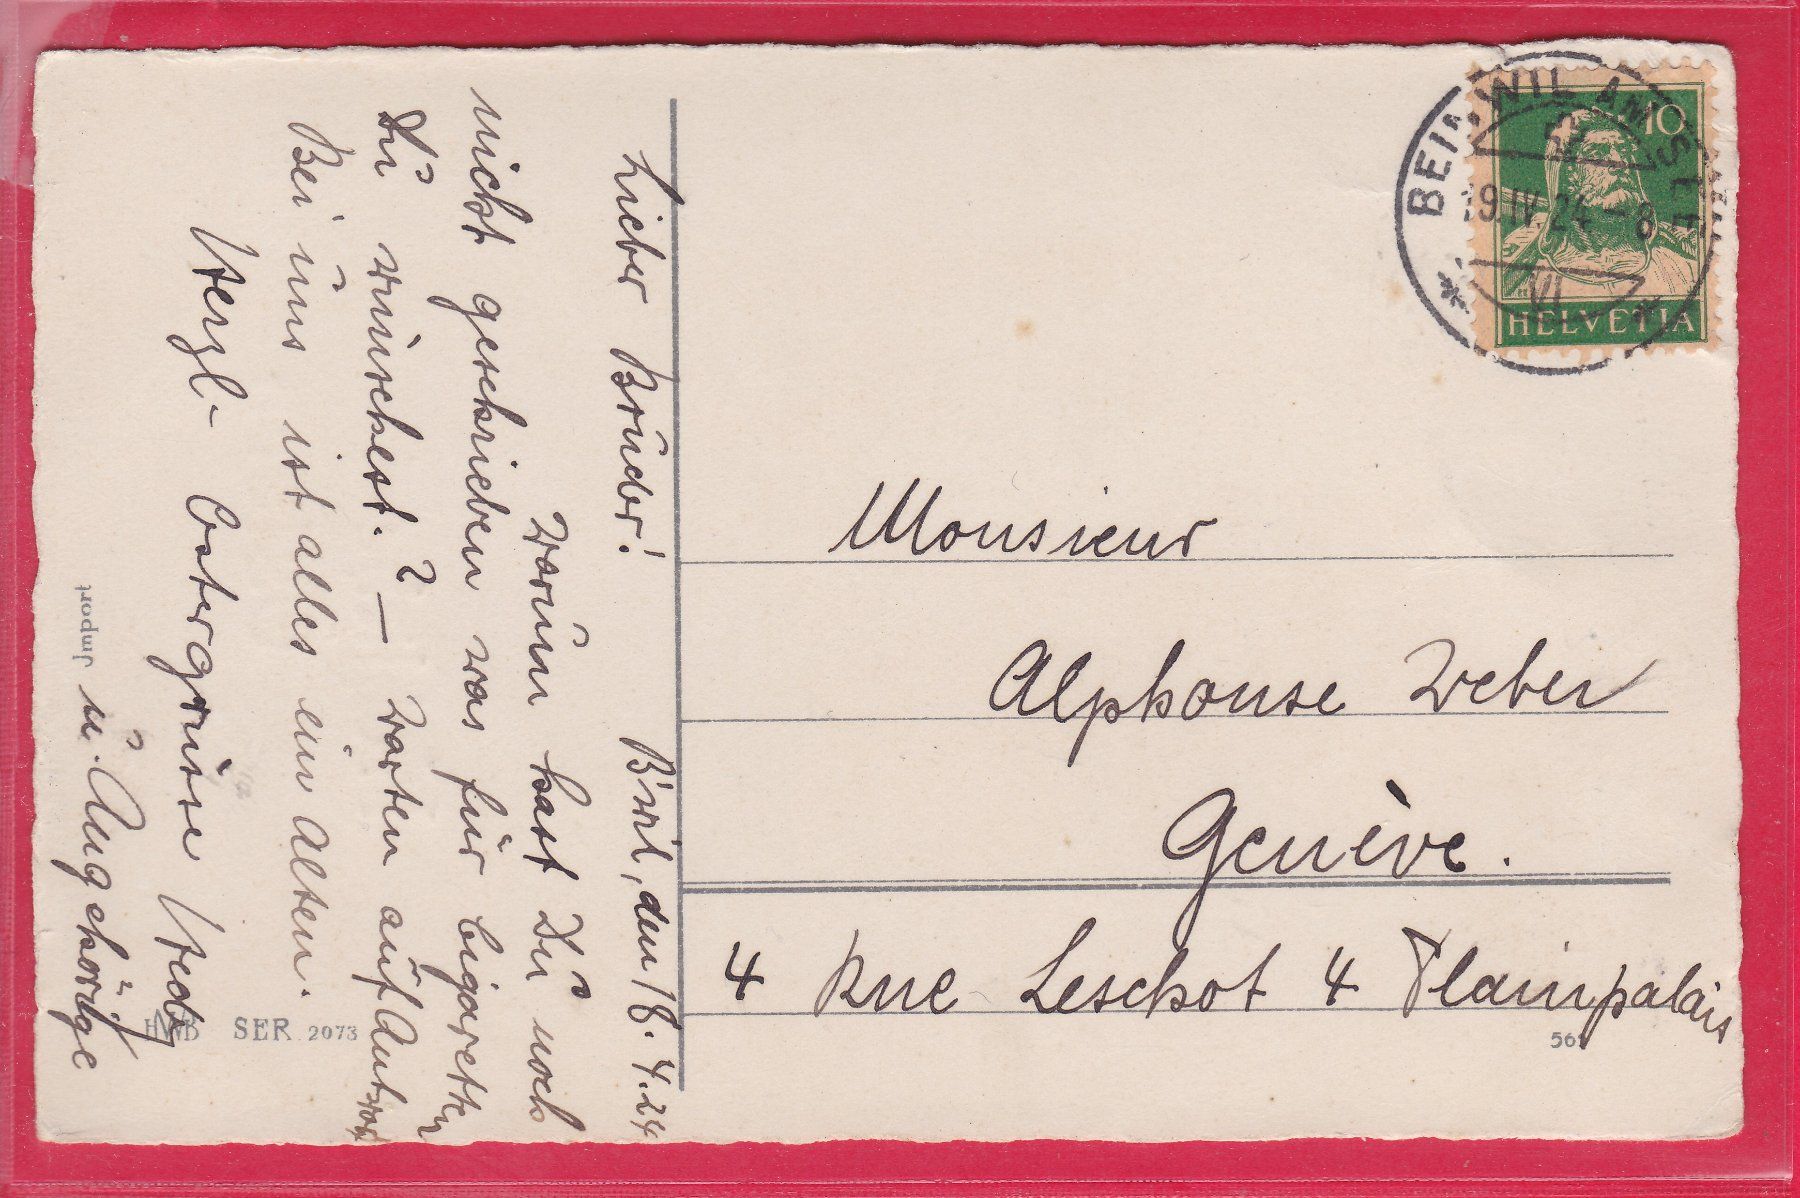 Lieber Bruder! B'wil, den 18.4.24
Warum hast Du noch
nicht geschrieben was für Cigaretten
Du wünschest.? — Warten auf Antwort
Bei uns ist alles im Alten.
Herzl- Ostergrüsse Hedy
u. Angehörige
Jmport
HWB SER. 2073
BEINWIL AM SEE
19.IV.24-8
VI
10
HELVETIA
Monsieur
Alphonse Weber
Genève.
4 Rue Leschot 4 Plainpalais